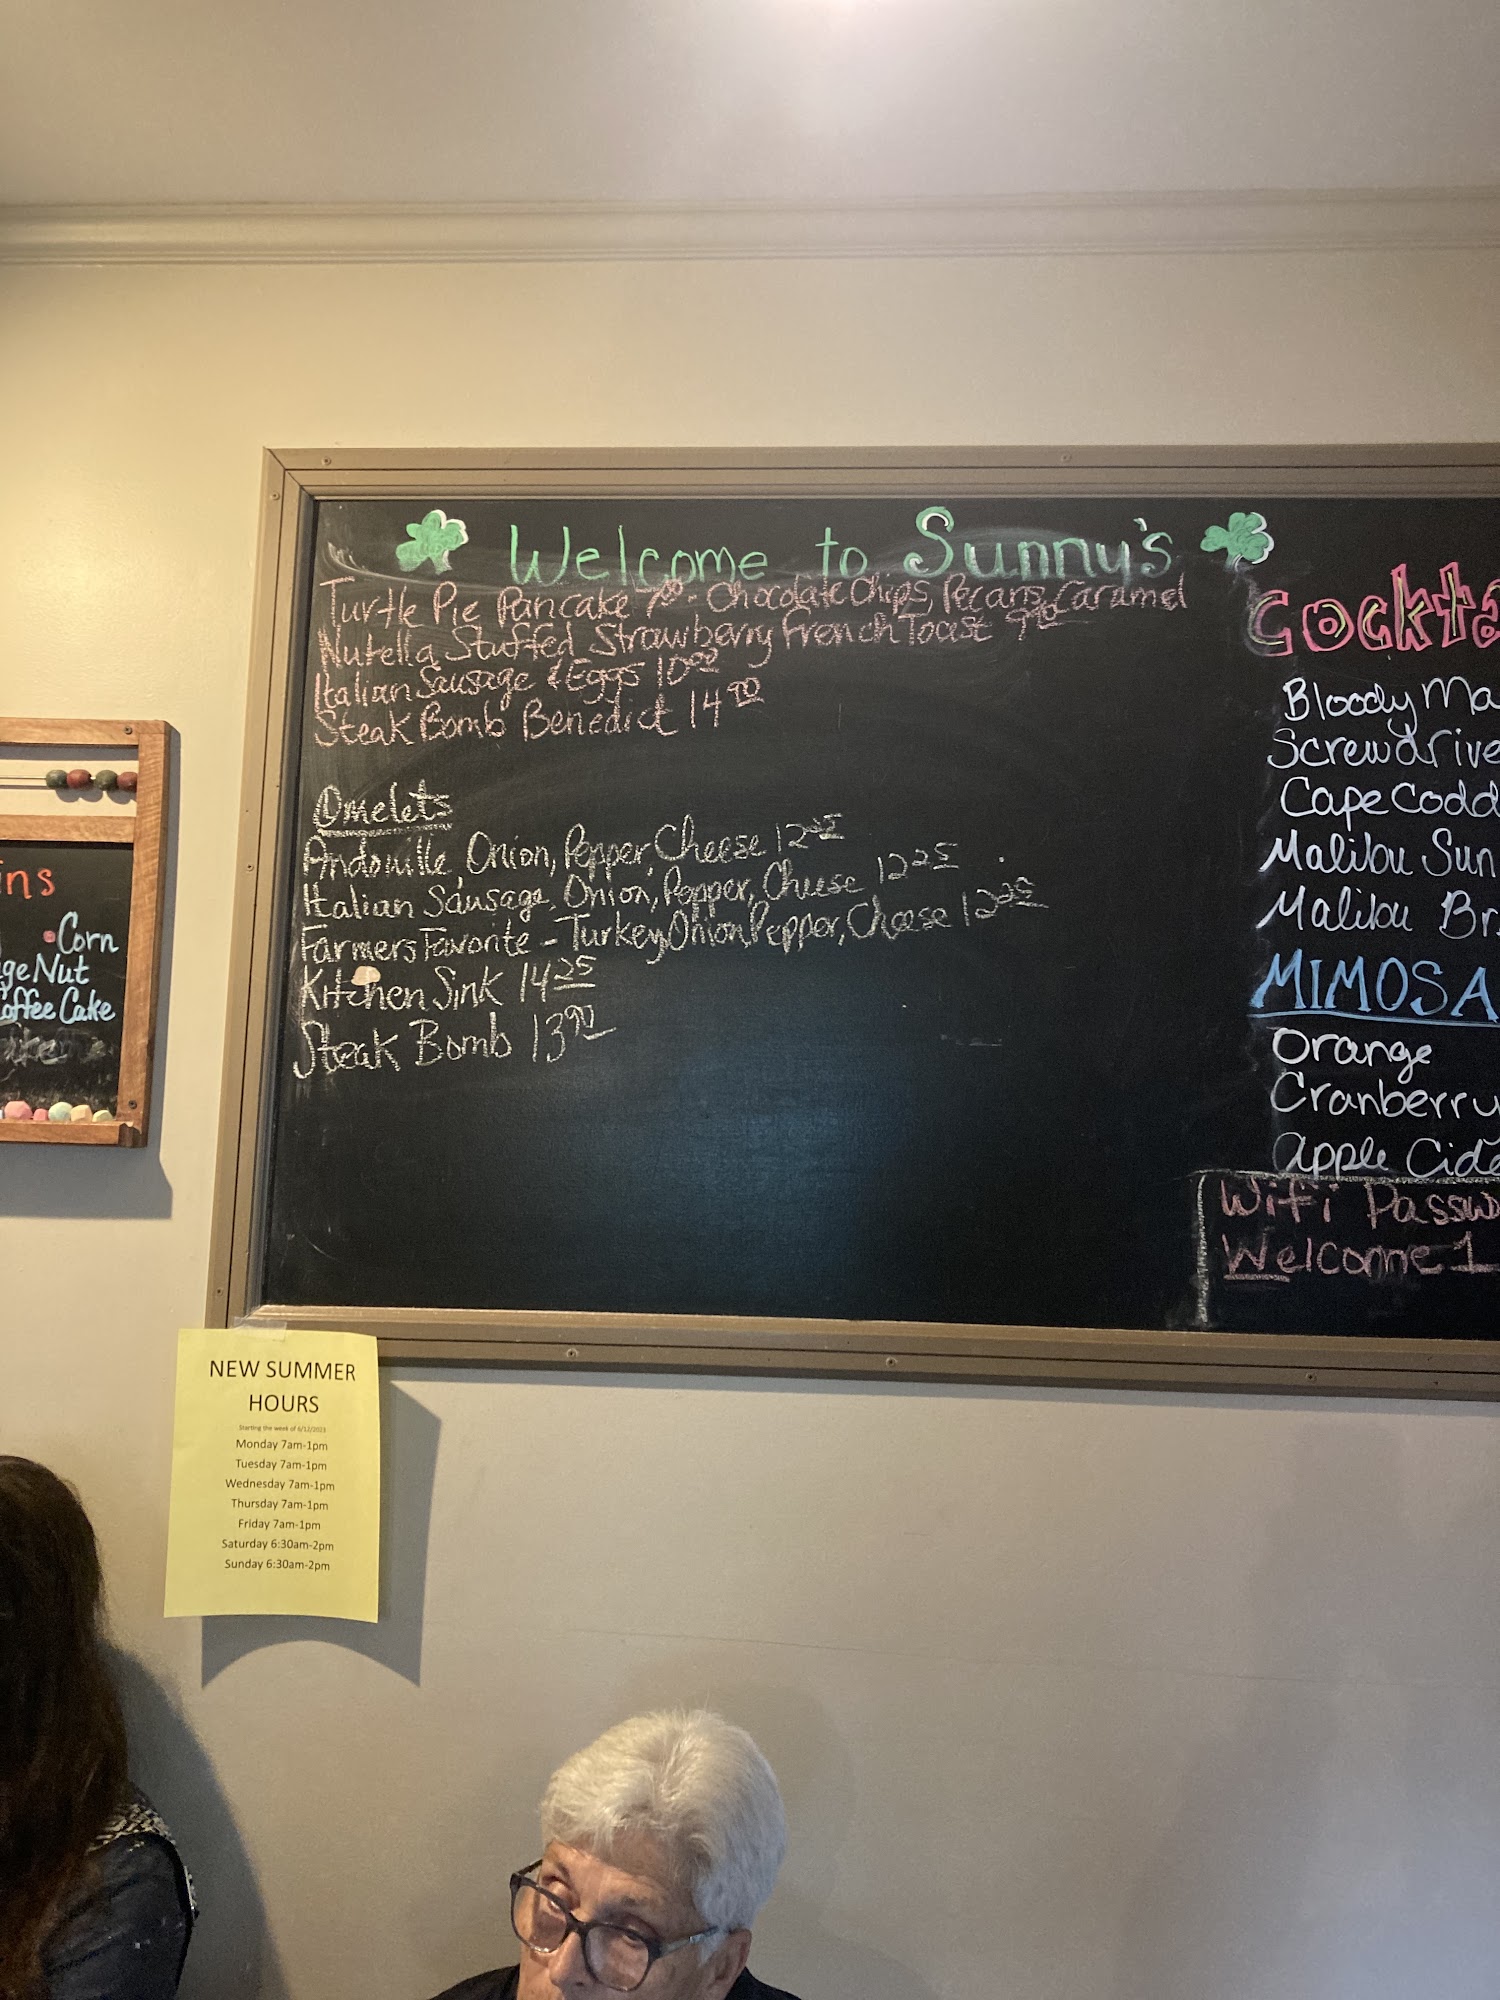 Welcome to Sunny's
Turtle Pie Pancake 7.00 - Chocolate Chips, Pecans, Caramel
Nutella Stuffed Strawberry French Toast 9.90
Italian Sausage & Eggs 10.90
Steak Bomb Benedict 14.90
Omelets
Andouille, Onion, Pepper, Cheese 12.25
Italian Sausage, Onion, Pepper, Cheese 12.25
Farmers Favorite - Turkey, Onion, Pepper, Cheese 12.25
Kitchen Sink 14.25
Steak Bomb 13.90
Cockta
Bloody Ma
Screwdrive
Cape Codd
Malibu Sun
Malibu Br
MIMOSA
Orange
Cranberry
Apple Cide
Wifi Passwo
Welcome1
ins
Corn
ge Nut
offee Cake
NEW SUMMER
HOURS
Starting the week of 6/12/2023
Monday 7am-1pm
Tuesday 7am-1pm
Wednesday 7am-1pm
Thursday 7am-1pm
Friday 7am-1pm
Saturday 6:30am-2pm
Sunday 6:30am-2pm